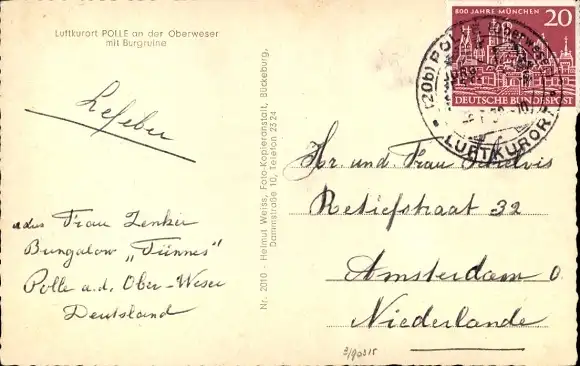 Luftkurort POLLE an der Oberweser
mit Burgruine
Lefeber
adres Frau Zenker
Bungalow „Tünnes"
Polle a.d. Ober-Weser
Deutsland
Nr. 2010 - Helmut Weiss, Foto-Kopieranstalt, Bückeburg,
Dammstraße 10, Telefon 2324
800 JAHRE MÜNCHEN 20
DEUTSCHE BUNDESPOST
(20b) POLLE Oberweser
LUFTKURORT
Hr. und. Frau
Retiefstraat 32
Amsterdam O.
Niederlande